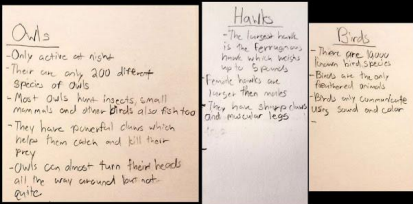 Owls
-Only active at night
-Their are only 200 different
species of owls
-Most owls hunt insects, small
mammals and other birds also fish too
-They have powerful claws which
help them catch and kill their
prey
-Owls can almost turn their heads
all the way around but not
quite
Hawks
-The largest hawk
is the ferruginous
hawk which weighs
up to 5 pounds
-Female hawks are
larger then males
-They have sharp claws
and muscular legs
Birds
-There are 10,000
known bird species
-Birds are the only
feathered animals
-Birds only communicate
using sound and color
-